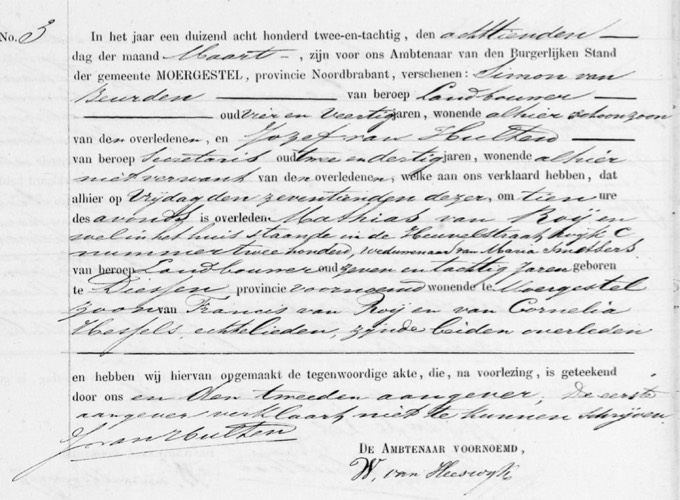 No. 3
In het jaar een duizend acht honderd twee-en-tachtig, den achttienden
dag der maand Maart, zijn voor ons Ambtenaar van den Burgerlijken Stand
der gemeente MOERGESTEL, provincie Noordbrabant, verschenen: Simon van
Beurden van beroep Landbouwer
oud vier en veertig jaren, wonende alhier schoonzoon
van den overledenen, en Jozef van Hulten
van beroep Secretaris oud twee en dertig jaren, wonende alhier
niet verwant van den overledenen, welke aan ons verklaard hebben, dat
alhier op Vrijdag den zeventienden dezer, om tien ure
des avonds is overleden Mathias van Roij en
wel in het huis staande in de Heuvelstraat, wijk C
nummer twee honderd, weduwnaar van Maria Smetsers
van beroep Landbouwer oud zeven en tachtig jaren geboren
te Diessen provincie voornoemd wonende te Moergestel
zoon van Francis van Roij en van Cornelia
Hessels, echtelieden, zijnde beiden overleden
en hebben wij hiervan opgemaakt de tegenwoordige akte, die, na voorlezing, is geteekend
door ons en den tweeden aangever. De eerste
aangever verklaart niet te kunnen schrijven.
J van Hulten
DE AMBTENAAR VOORNOEMD,
W. van Heeswijk